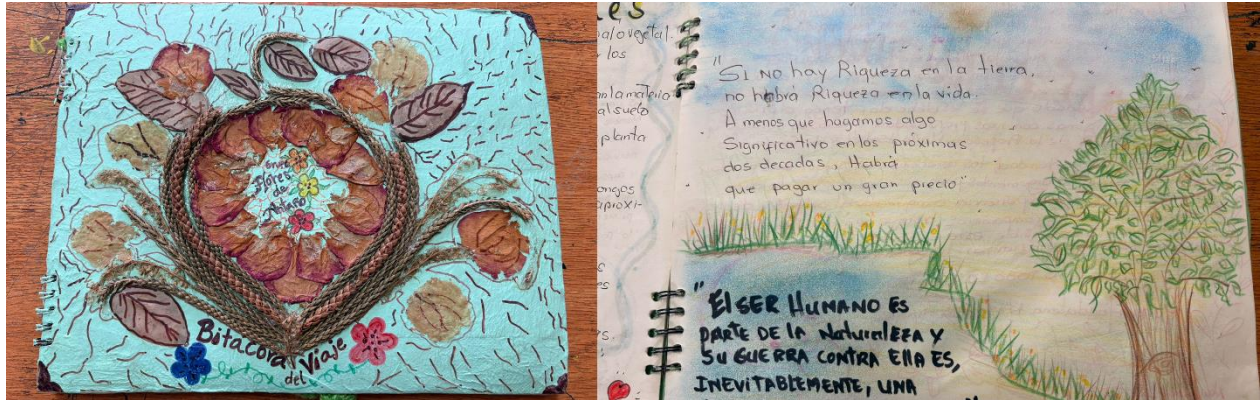 Entre
Flores
de
Antaño
Bitacora
del
Viaje
es
vegetal.
los
en la materia
al suelo
planta
ongos
aproxi-
es
"Si no hay Riqueza en la tierra,
no habrá Riqueza en la vida.
A menos que hagamos algo
Significativo en los próximas
dos decadas, Habrá
que pagar un gran precio"
"El SER HUMANO ES
PARTE DE LA NaturalEZA Y
SU GUERRA CONTRA Ella ES,
INEVITABLEMENTE, UNA